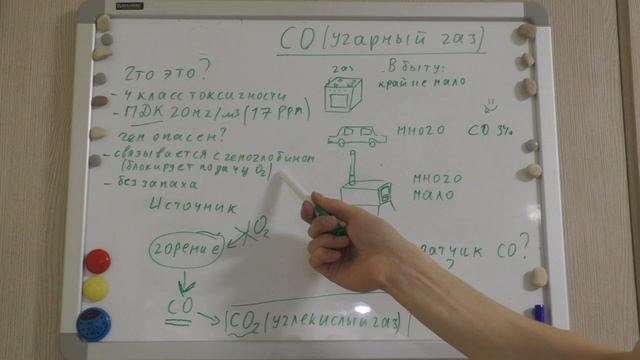 CO (угарный газ)
Что это?
- 4 класс токсичности
- ПДК 20мг/м3 (17 ppm)
чем опасен?
- связывается с гемоглобином
(блокирует подачу O2)
- без запаха
Источник
горение
O2
CO
CO2 (углекислый газ)
газ
- В быту:
крайне мало
много CO 3%
много
мало
датчик CO?
?